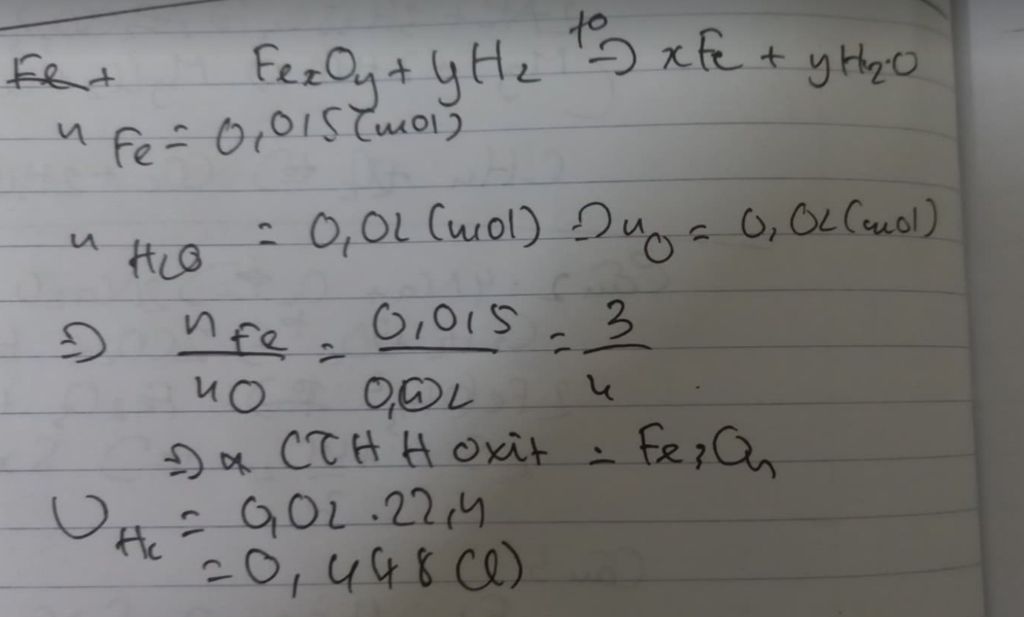 Fe + FexOy + yH2 t0 → xFe + yH2O
nFe = 0,015 (mol)
nH2O = 0,02 (mol) ⇒ nO = 0,02 (mol)
⇒ nFe / nO = 0,015 / 0,02 = 3 / 4
⇒ CTHH oxit = Fe3O4
VH2 = 0,02 . 22,4
= 0,448 (l)